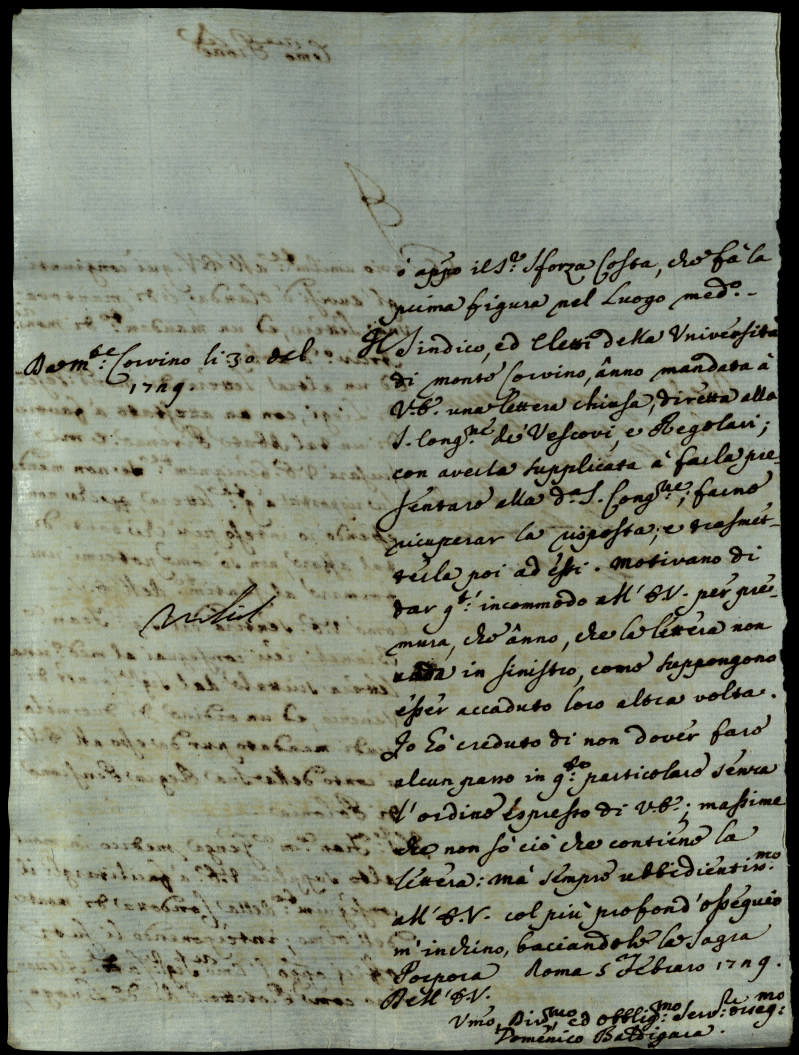 ò appo il S.r Sforza Costa, che fà la
prima figura nel Luogo med.o -
Il Sindico, ed Eletti della Università
di monte Corvino, ânno mandata à
V.E. una lettera chiusa, diretta alla
S. Cong.ne de' Vescovi, e Regolari;
con averla supplicata à farla pre-
sentare alla d.a S. Cong.ne, farne
ricuperar la risposta, e trasmet-
terla poi ad essi. Motivano di
dar q.to incommodo all' E.V. per pre-
mura, che ânno, che la lettera non
vada in sinistro, come suppongono
esser accaduto loro altra volta.
Io hò creduto di non dover fare
alcun passo in q.sto particolare senza
l'ordine espresso di V.E.; massime
che non sò ciò che contiene la
lettera: mà sempre ubbidientiss.mo
all' E.V. col più profond' ossequio
m'inchino, baciandole la Sagra
Porpora Roma 5 Febraro 1729.
Dell' E.V.
Vmo, Div.mo ed obblig.mo Serv.re osseq.mo
Domenico Baldigara.
Da m.te Corvino li 30 del
1729.
Nihil